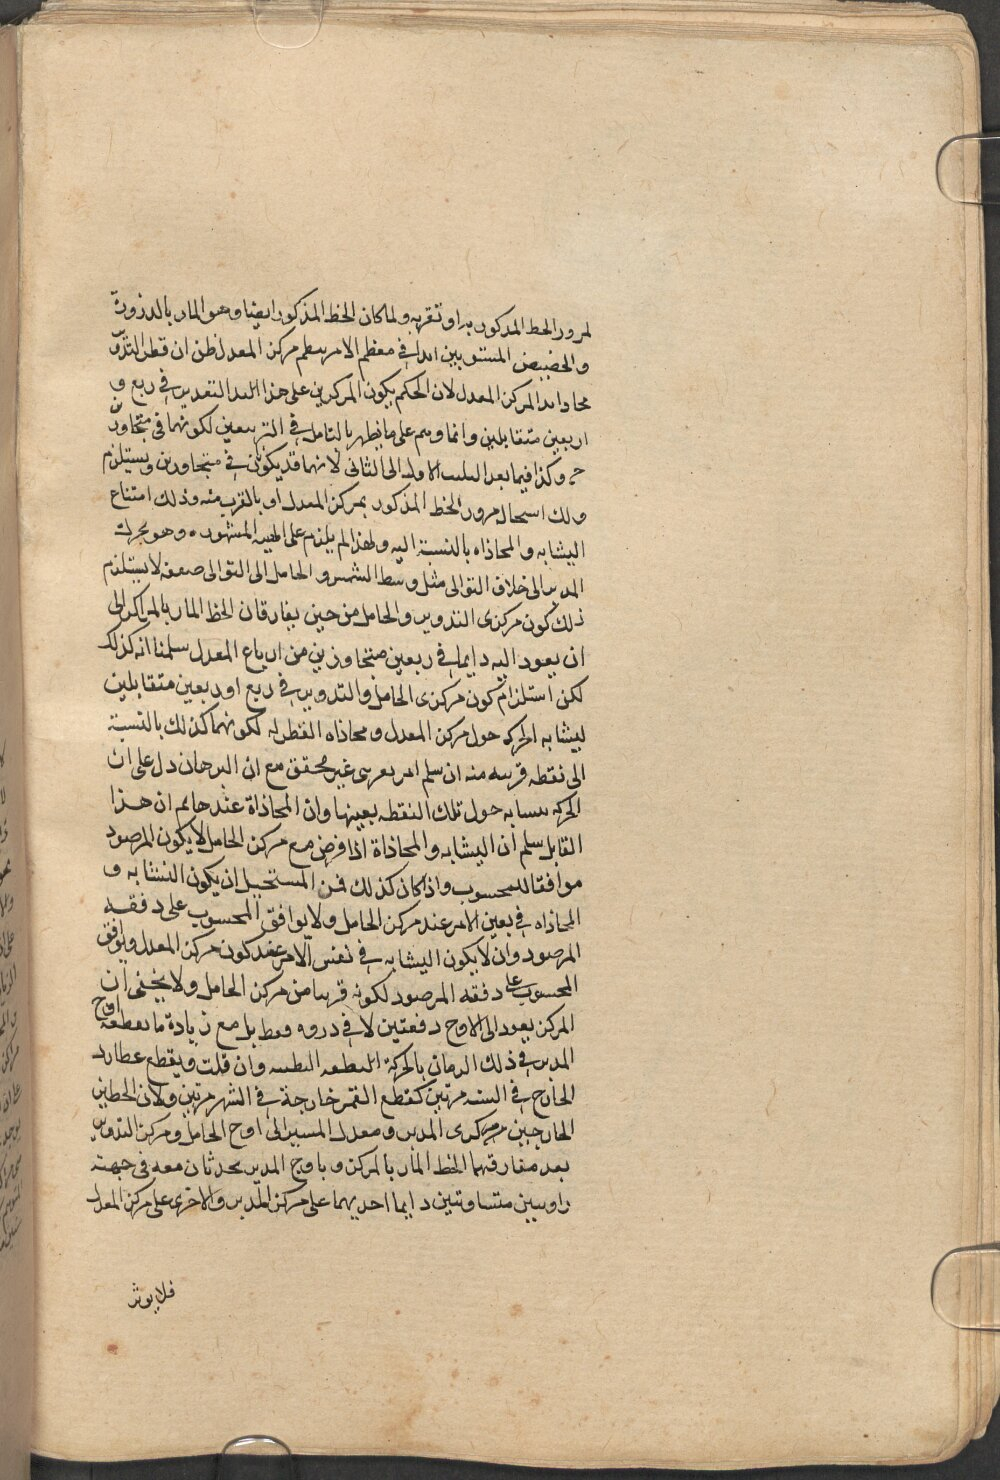 لمرور الخط المذكور به او تقربه ولما كان الخط المذكور ايضا وهو المار بالذروة
والحضيض المستويين ابدا في معظم الامر مركز المعدل ظن ان قطر التدوير
محاذ ابدا لمركز المعدل لان الحكم بكون المركزين على هذا التقدير في ربع و
اربعين متقابلين وانما وهم على ما يظهر بالتامل في التربيعين لكونهما في متجاورين
وكذا فيما بعد التثليث الاول الى الثانى لانهما قد يكونان في متجاورين ويستلزم
ذلك استحالة مرور الخط المذكور بمركز المعدل او بالقرب منه وذلك امتناع
التشابه والمحاذاه بالنسبة اليه ولهذا لم يلزم على الهيئه المشهوره وهو تحرك
المدير الى خلاف التوالى مثل وسط الشمس والحامل الى التوالى ضعفه لا يستلزم
ذلك كون مركزى التدوير والحامل من حين يفارقان الخط المار بالمراكز الى
ان يعود اليه دايما في ربعين متجاوزين من ارباع المعدل سلمنا انه كذلك
لكن استلزام كون مركزى الحامل والتدوير في ربع او ربعين متقابلين
لتشابه الحركه حول مركز المعدل ومحاذاه القطر له لكونهما كذلك بالنسبة
الى نقطه قريبه منه ان سلم امر غير محقق مع ان البرهان دل على ان
الحركه تتشابه حول تلك النقطه بعينها وان المحاذاة عندها ثم ان هذا
القايل سلم ان التشابه والمحاذاة اذا فرض مع مركز الحامل لا يكون المرصود
موافقا للمحسوب واذا كان كذلك فمن المستحيل ان يكون التشابه و
المحاذاه في بعض الامر عند مركز الحامل ولا يوافق المحسوب على دفقه
المرصود وان لا يكون التشابه في نفس الامر عند كون مركز المعدل ويوافق
المحسوب على دفقه المرصود لكونه قريبا من مركز الحامل ولا يخفى ان
المركز يعود الى الاوج دفعتين لا في دوره فقط بل مع زيادة ما يقطعه اوج
المدير في ذلك الزمان بالحركة البطيئه وان قلت ويقطع عطارد
الخارج في السنه مرتين كقطع القمر خارجة في الشهر مرتين ولان الخطين
الخارجين من مركزى المدير ومعدل المسير الى اوج الحامل ومركز التدوير
بعد مفارقتهما الخط المار بالمركز وباوج المدير يحدثان معه في جهته
زاويتين متساوتين دايما احديهما على مركز المدير والاخرى على مركز المعدل
فلا يوثر